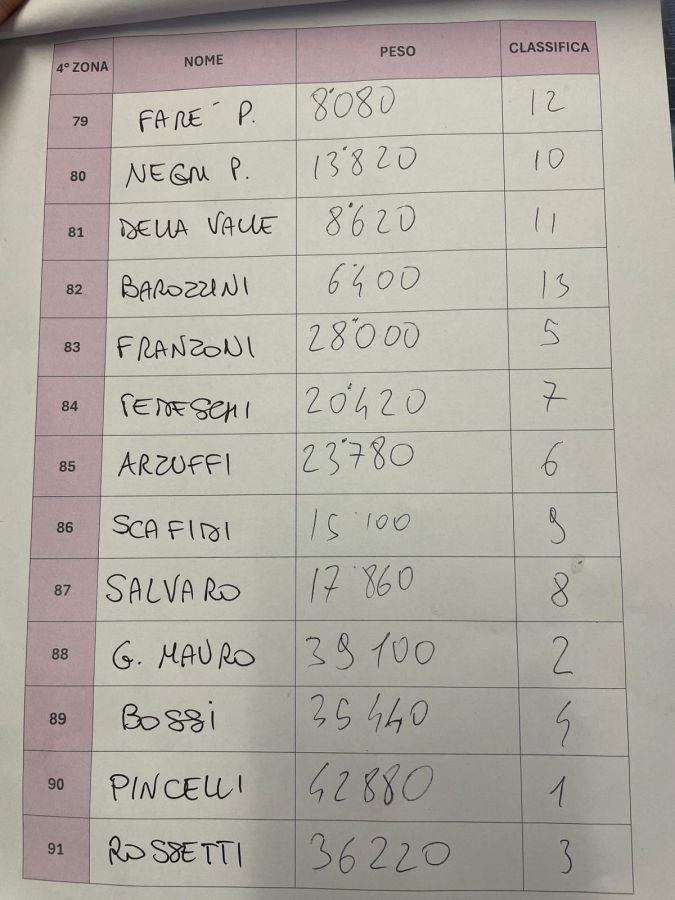 4° ZONA NOME PESO CLASSIFICA
79 FARE' P. 8'080 12
80 NEGRI P. 13'820 10
81 DELLA VALLE 8'620 11
82 BAROZZINI 6'400 13
83 FRANZONI 28'000 5
84 TEDESCHI 20'420 7
85 ARZUFFI 23'780 6
86 SCAFIDI 15'100 9
87 SALVARO 17'860 8
88 G. MAURO 39 100 2
89 BOSSI 35 440 4
90 PINCELLI 42880 1
91 ROSSETTI 36220 3